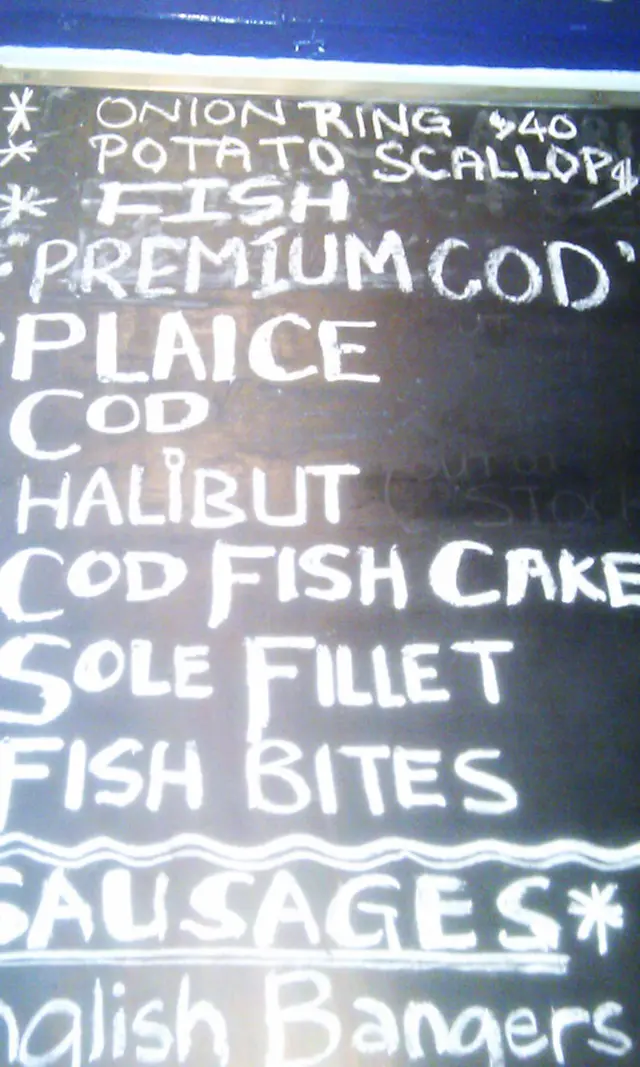 * ONION RING $40
* POTATO SCALLOP $
* FISH
"PREMIUM COD"
PLAICE
COD
HALIBUT (OUT OF STOCK
COD FISH CAKE
SOLE FILLET
FISH BITES
SAUSAGES*
nglish Bangers